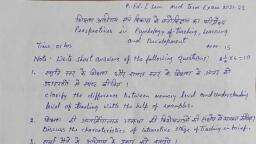 B.Ed. I sem mid Term Exam 2021-22
शिक्षण अधिगम एवं विकास के मनोविज्ञान का परिप्रेक्ष्य
Perspectives in Psychology of Teaching, Learning
and Development
Time: 01 hrs MM: 15
Note:- Write short answers of the following questions:
1. स्मृति स्तर के शिक्षण और समझ स्तर के शिक्षण में अन्तर को
उदाहरणों से स्पष्ट कीजिए।
Clarify the difference between memory level and understanding
level of teaching with the help of examples.
2. शिक्षण की अन्तःक्रियात्मक अवस्था की विशेषताओं की
Discuss the characteristics of interactive stage of teaching in brief.